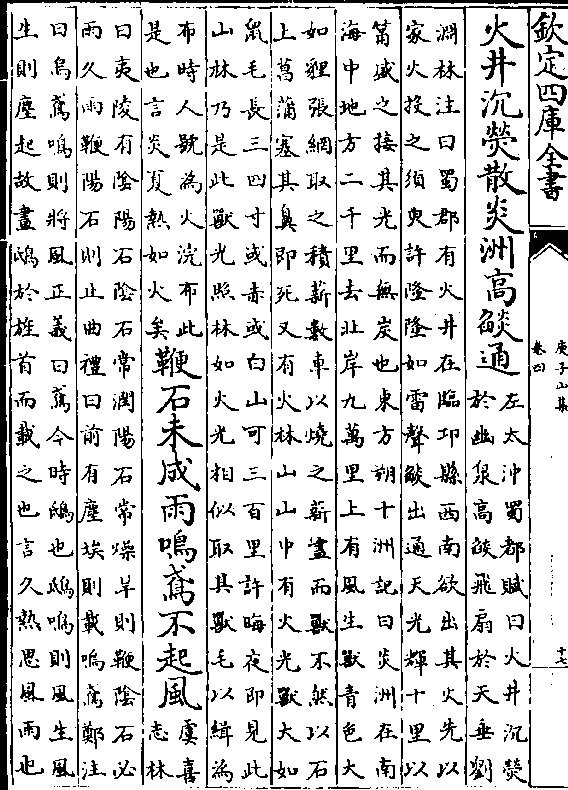 欽定四庫全書
庾子山集
卷四
十七
火井沉熒散炎洲高燄通
左太沖蜀都賦曰火井沉熒
於幽泉高燄飛扇於天垂劉
淵林注曰蜀郡有火井在臨邛縣西南欲出其火先以
家火投之須臾許隆隆如雷聲燄出通天光輝十里以
筩盛之接其光而無炭也東方朔十洲記曰炎洲在南
海中地方二千里去北岸九萬里上有風生獸青色大
如狸張網取之積薪數車以燒之薪盡而獸不然以石
上菖蒲塞其鼻即死又有火林山山中有火光獸大如
鼠毛長三四寸或赤或白山可三百里許晦夜即見此
山林乃是此獸光照林如火光相似取其獸毛以緝為
布時人號為火浣布此
是也言炎夏熱如火矣
鞭石未成雨鳴鳶不起風
虞喜
志林
曰夷陵有陰陽石陰石常潤陽石常燥旱則鞭陰石必
雨久雨鞭陽石則止曲禮曰前有塵埃則載鳴鳶鄭注
曰烏鳶鳴則將風正義曰鳶今時鴟也鴟鳴則風生風
生則塵起故畫鴟於旌首而載之也言久熱思風雨也